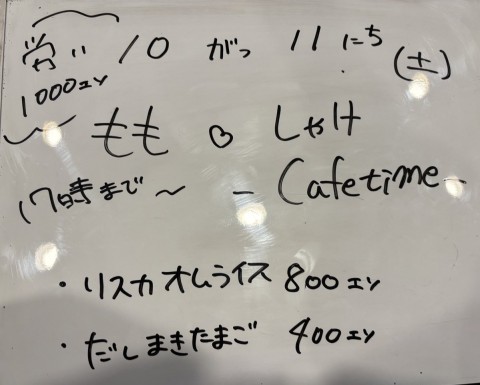 10 がつ 11 にち (土)
1000エン
もも♡しゃけ
17時まで〜 - Cafetime -
・リスカオムライス 800エン
・だしまきたまご 400エン